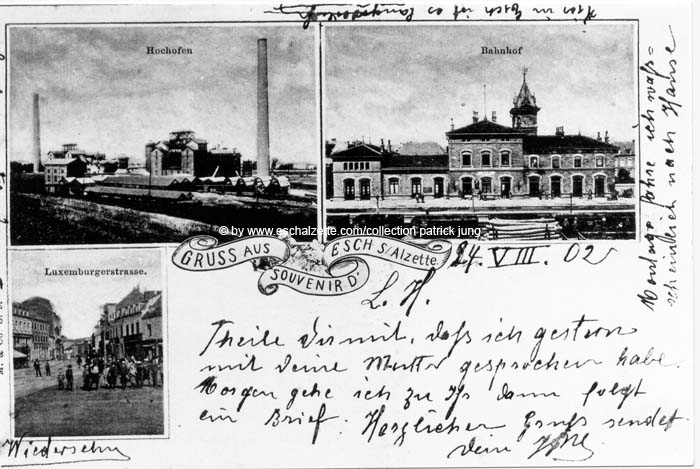 Hier in Esch ist es
Hochofen
Bahnhof
© by www.eschalzette.com/collection patrick jung
GRUSS AUS ESCH S/Alzette
SOUVENIR D'
24. VIII. 02
Luxemburgerstrasse.
L. H.
Theile Dir mit, daß ich gestern
mit deine Mutter gesprochen habe.
Morgen gehe ich zu Ihr dann folgt
ein Brief. Herzlicher Gruß sendet
Dein
Wiedersehn
Montags fahre ich
scheinlich nach Hause